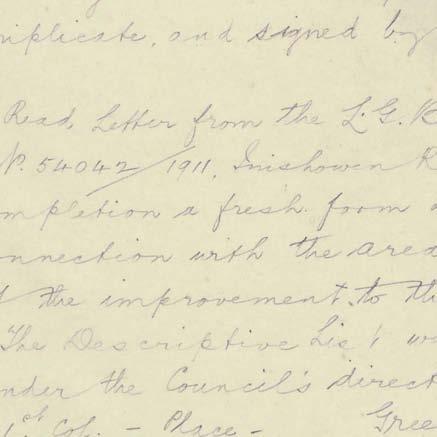 riplicate, and signed by
Read, Letter from the L.G.B
No. 54042/1911, Inishowen R
ompletion a fresh form o
onnection with the area
the improvement to th
The Descriptive List w
under the Council's direct
1st Col. - Place - Gree